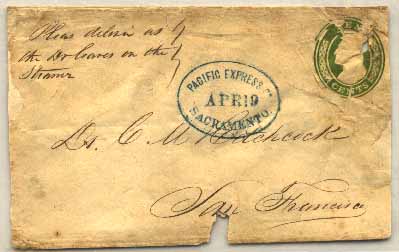 Pleas deliver as
the Dr leaves on the
Steamer
PACIFIC EXPRESS Co
APR 19
SACRAMENTO.
CENTS
Dr. C M Hitchcock
San Francisco